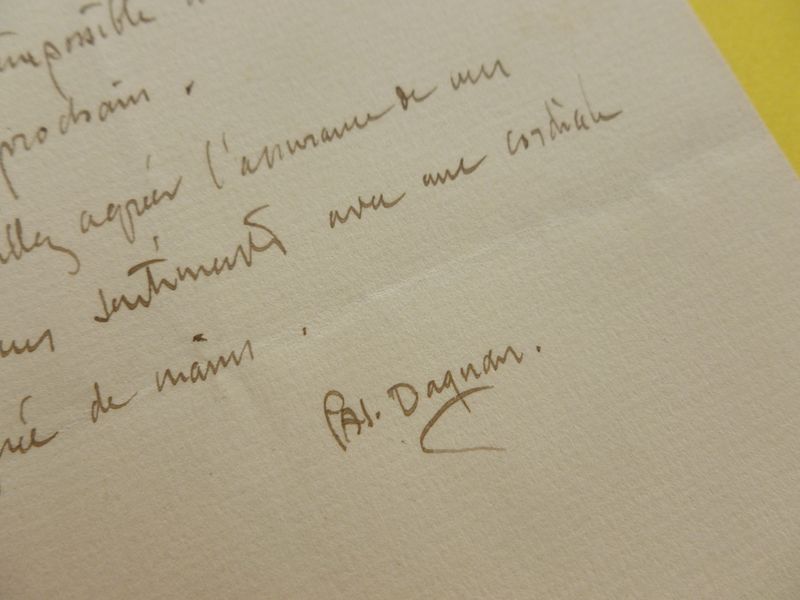 impossible
prochain.
agréer l'assurance de mes
sentiments avec une cordiale
de mains.
PAJ. Dagnan.